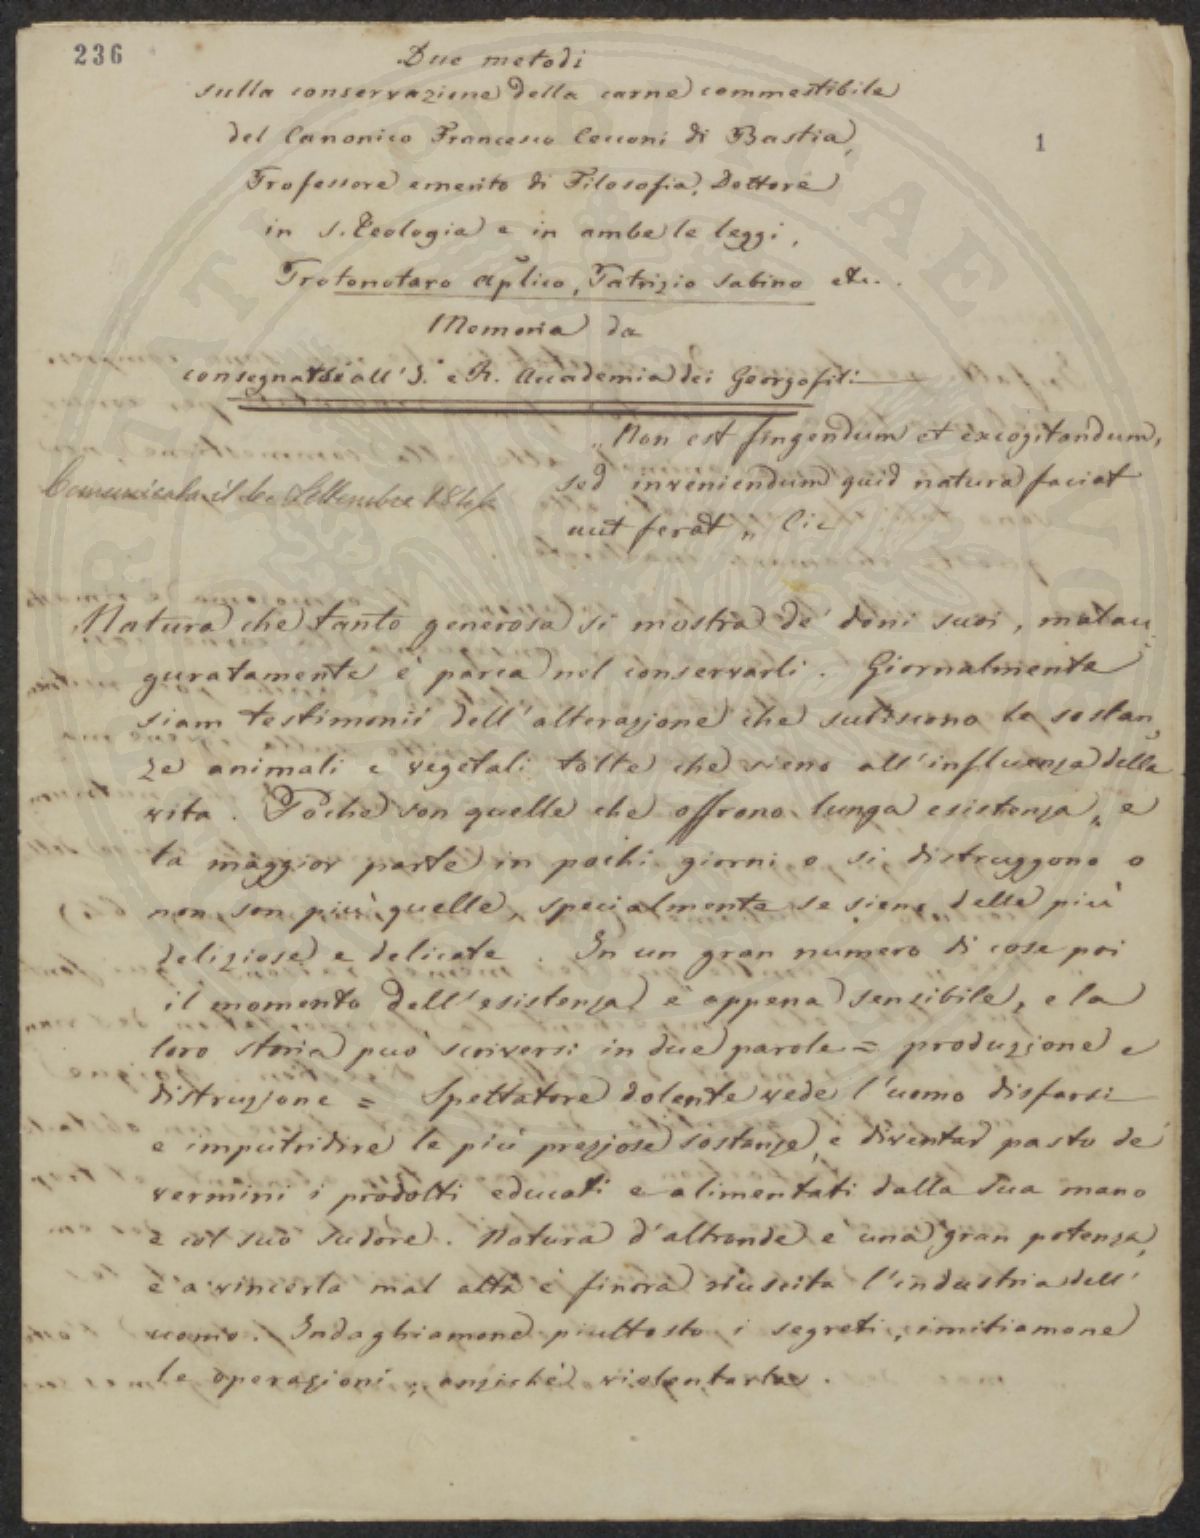 236
Due metodi
sulla conservazione della carne commestibile
del Canonico Francesco Cecconi di Bastia,
1
Professore emerito di Filosofia, Dottore
in S. Teologia e in ambe le leggi,
Protonotaro Aplico, Patrizio Sabino etc..
Memoria da
consegnarsi all' I. e R. Accademia dei Georgofili
„ Non est fingendum et excogitandum,
sed inveniendum quid natura faciat
aut ferat „ Cic
Comunicata il Settembre
Natura che tanto generosa si mostra de' doni suoi, malau
guratamente è parca nel conservarli. Giornalmente
siam testimonii dell'alterazione che subiscono le sostan
ze animali e vegetali tolte che sieno all'influenza della
vita. Poche son quelle che offrono lunga esistenza, e
la maggior parte in pochi giorni o si distruggono o
non son più quelle, specialmente se sieno delle più
deliziose e delicate. In un gran numero di cose poi
il momento dell'esistenza è appena sensibile, e la
loro storia può scriversi in due parole = produzione e
distruzione = Spettatore dolente vede l'uomo disfarsi
e imputridire le più preziose sostanze, e diventar pasto de'
vermini i prodotti educati e alimentati dalla sua mano
e col suo sudore. Natura d'altronde è una gran potenza,
e a vincerla mal atta è finora riuscita l'industria dell'
uomo. Indaghiamone piuttosto i segreti, imitiamone
le operazioni, anzichè violentarla.